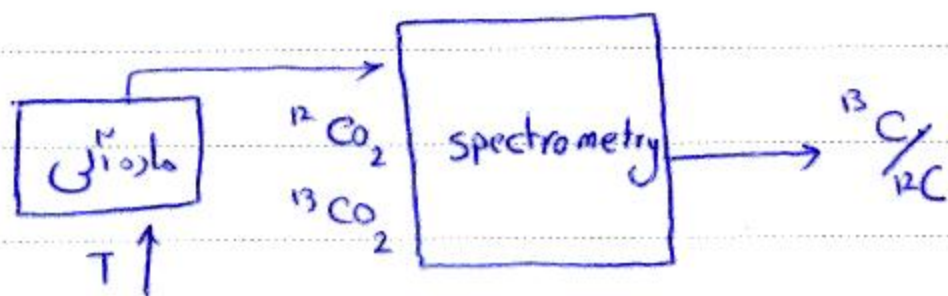 ماده آلی
T
¹²CO₂
¹³CO₂
spectrometry
¹³C/₁₂C